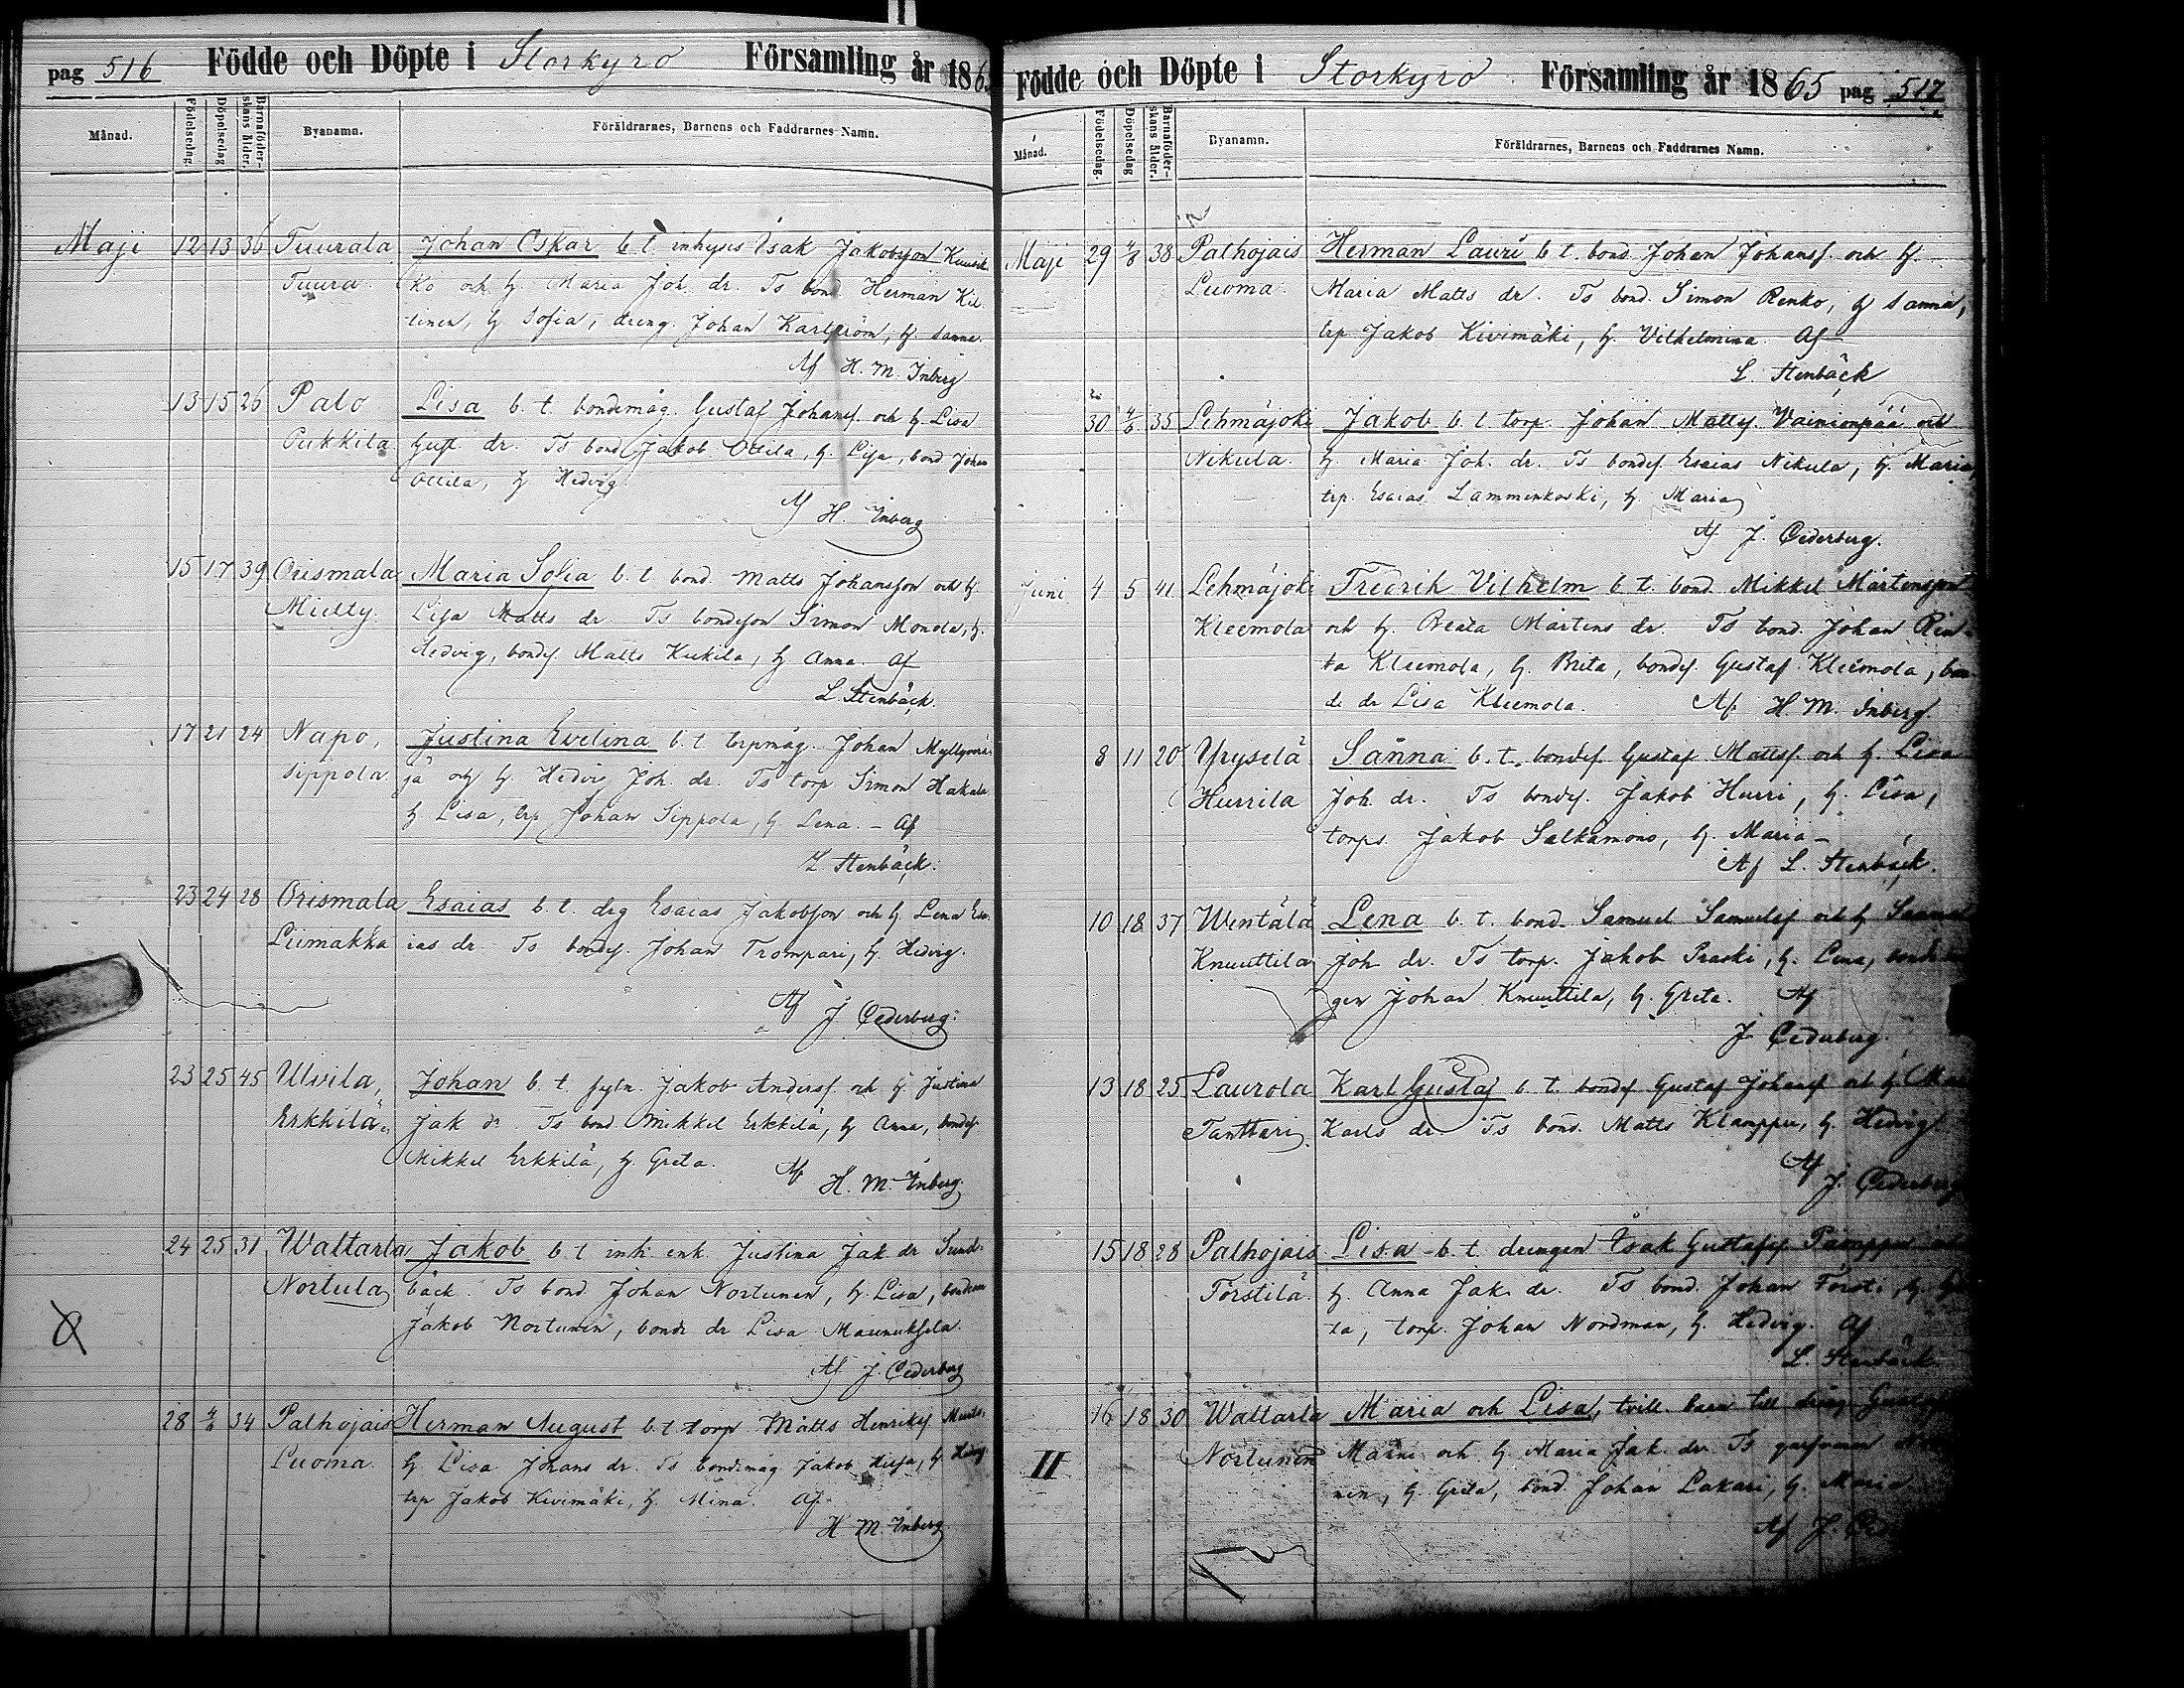 pag 516 Födde och Döpte i Storkyro Församling år 186
Månad. Födelsedag. Döpelsedag Barnaföderskans ålder. Byanamn. Föräldrarnes, Barnens och Faddrarnes Namn.
Maji 12 13 36 Tuurala Johan Oskar b. t. inhyses Isak Jakobsson Kuusik
Tuura. ko och h. Maria Joh. dr. Ts bond. Herman Kil
tinen, h. Sofia, dreng. Johan Karlström, h. Sanna.
Af H. M. Inberg
13 15 26 Palo Lisa b. t. bondemåg. Gustaf Johanss. och h. Lisa
Pukkila Gust. dr. Ts bond Jakob Ollila, h. Lisa, bond Johan
Ollila, h. Hedvig
Af H. Inberg
15 17 39 Orismala Maria Sofia b. t. bond. Matts Johansson och h.
Mielty. Lisa Matts dr. Ts bondeson Simon Monola, h.
Hedvig, bondes. Matts Kukila, h. Anna. Af
L. Stenbäck.
17 21 24 Napo, Justina Evelina b. t. torpmåg. Johan Myllyperä
Sippola jä och h. Hedvig Joh. dr. Ts torp Simon Hakala
h. Lisa, trp Johan Sippola, h. Lena. – Af
L. Stenbäck.
23 24 28 Orismala Esaias b. t. drg Esaias Jakobsson och h. Lena Esa
Liimakka ias dr. Ts bondes. Johan Trompari, h. Hedvig.
Af J. Cederberg.
23 25 45 Ulvila, Johan b. t. sytn. Jakob Anderss. och h. Justina
Erkkilä Jak dr. Ts bond Mikkel Erkkilä, h. Anna, bondes.
Mikkel Erkkilä, h. Greta. Af
H. M. Inberg.
24 25 31 Waltarla Jakob b. t. inh. enk. Justina Jak dr Sund-
Nortula bäck. Ts bond Johan Nortunen, h. Lisa, bonden
Jakob Nortunen, bonde dr Lisa Maunuksela.
Af J. Cederberg
28 4/6 34 Palhojais Herman August b. t. torp Matts Henrikss
Luoma. h. Lisa Johans dr. Ts bondemåg Jakob
trp Jakob Kivimäki, h. Mina. Af
H. M. Inberg
Födde och Döpte i Storkyro Församling år 1865 pag 517
Månad. Födelsedag. Döpelsedag Barnaföderskans ålder. Byanamn. Föräldrarnes, Barnens och Faddrarnes Namn.
Maji 29 4/6 38 Palhojais Herman Lauri b. t. bond. Johan Johanss. och h.
Luoma. Maria Matts dr. Ts bond. Simon Renko, h. Sanna,
trp Jakob Kivimäki, h. Vilhelmina. Af
L. Stenbäck
30 4/6 35 Lehmäjoki Jakob b. t. torp. Johan Mattss. Vainionpää och
Nikula. h. Maria Joh. dr. Ts bondes. Esaias Nikula, h. Maria,
trp. Esaias Lammenkoski, h. Maria
Af J. Cederberg.
Juni 4 5 41 Lehmäjoki Fredrik Vilhelm b. t. bond Mikkel Mårtensson
Kleemola och h. Beata Mårtens dr. Ts bond. Johan Rin-
ta Kleemola, h. Brita, bondes. Gustaf Kleemola, bon-
de dr Lisa Kleemola. Af H. M. Inberg.
8 11 20 Yryselä Sanna b. t. bondes. Gustaf Mattss. och h. Lisa
Hurrila Joh. dr. Ts bondes. Jakob Hurri, h. Lisa,
torps. Jakob Salkamono, h. Maria –
Af L. Stenbäck.
10 18 37 Wentälä Lena b. t. bond. Samuel Samuelss. och h. Sanna
Knuuttila Joh. dr. Ts torp. Jakob Praski, h. Lena,
gen Johan Knuuttila, h. Greta. Af
J. Cederberg.
13 18 25 Laurola Karl Gustaf b. t. bondes. Gustaf Johanss. och h. Mar
Tanttari Karls dr. Ts bond. Matts Klamppu, h. Hedvig.
Af J. Cederberg
15 18 28 Palhojais Lisa b. t. drengen Isak Gustafss. Pamppu
Förstilä. h. Anna Jak. dr. Ts bond. Johan Försti, h. Gre
ta, torp. Johan Nordman, h. Hedvig. Af
L. Stenbäck.
16 18 30 Waltarla Maria och Lisa, tvill. barn till dreng Gustaf
II Nortunen Manni och h. Maria Jak. dr. Ts
nen, h. Greta, bond. Johan Lakari, h. Maria
Af J. Ced